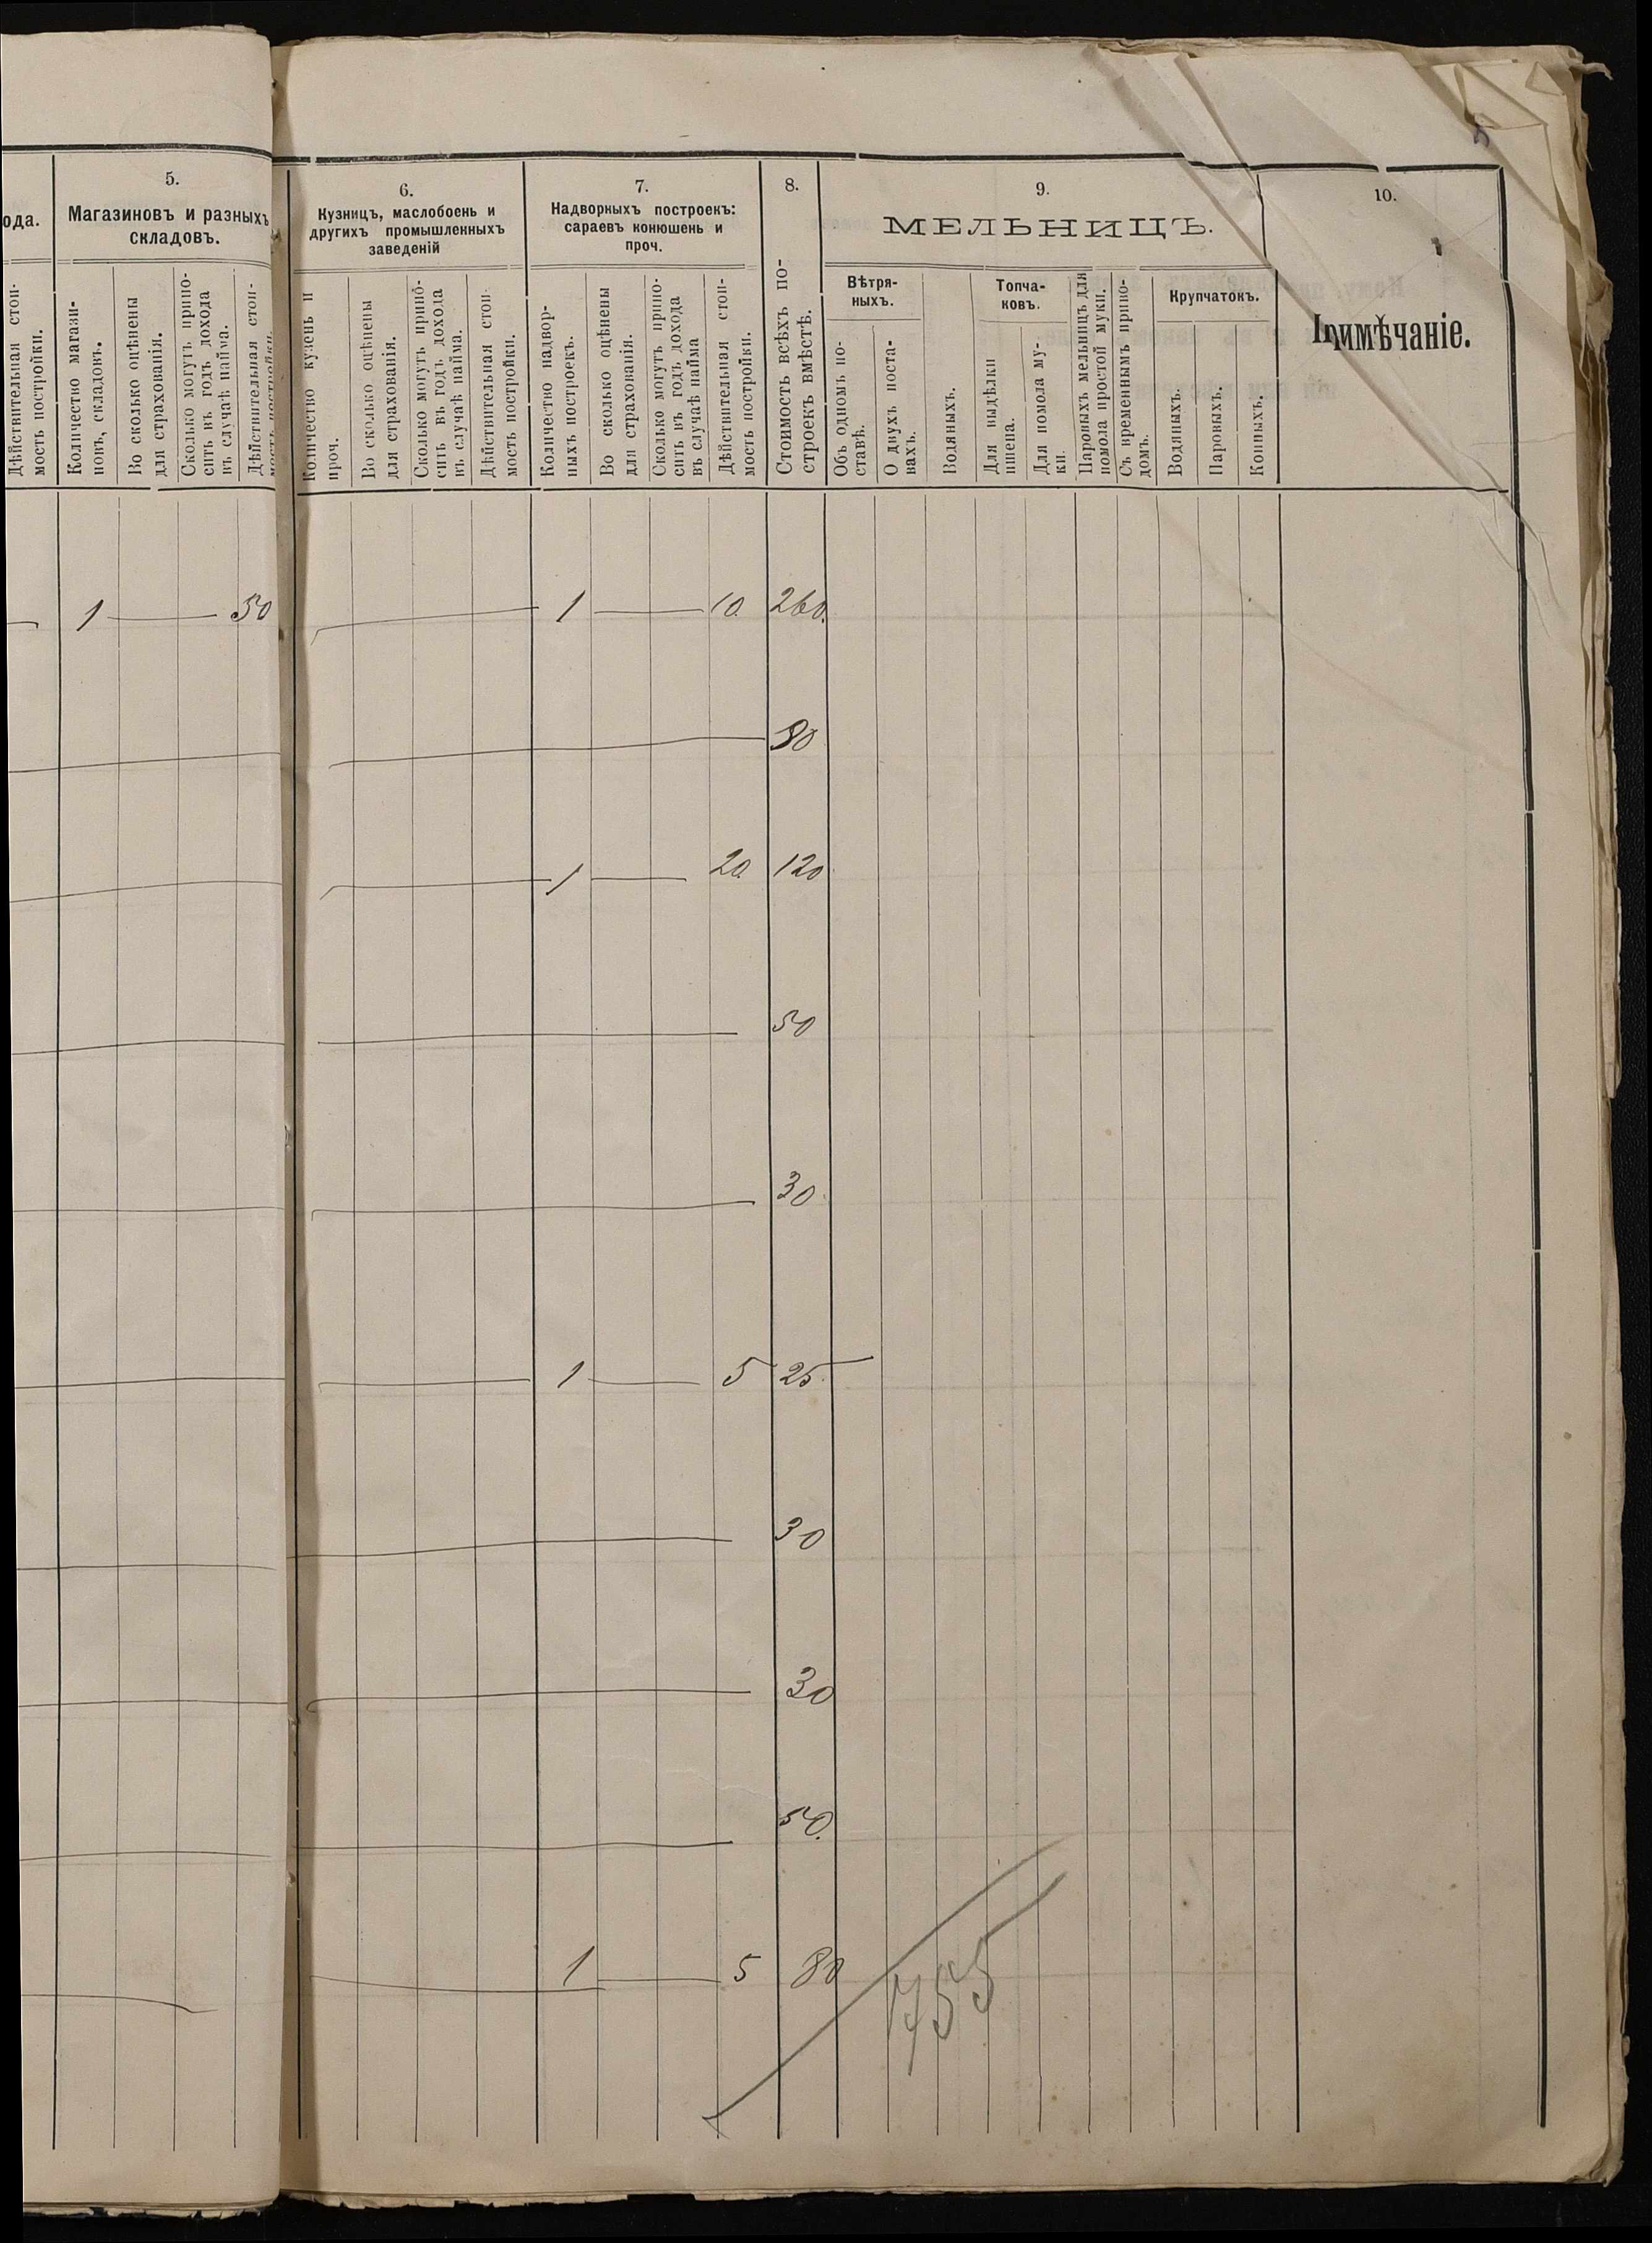 ода.
5.
Магазиновъ и разныхъ
складовъ.
6.
Кузницъ, маслобоень и
другихъ промышленныхъ
заведеній
7.
Надворныхъ построекъ:
сараевъ конюшень и
проч.
8.
Стоимость всѣхъ по-
строекъ вмѣстѣ.
9.
МЕЛЬНИЦЪ.
10.
Примѣчаніе.
Дѣйствительная стои-
мость постройки.
Количество магази-
новъ, складовъ.
Во сколько оцѣнены
для страхованія.
Сколько могутъ прино-
сить въ годъ дохода
въ случаѣ найма.
Дѣйствительная стои-
мость постройки.
Количество кузень и
проч.
Во сколько оцѣнены
для страхованія.
Сколько могутъ прино-
сить въ годъ дохода
въ случаѣ найма.
Дѣйствительная стои-
мость постройки.
Количество надвор-
ныхъ построекъ.
Во сколько оцѣнены
для страхованія.
Сколько могутъ прино-
сить въ годъ дохода
въ случаѣ найма
Дѣйствительная стои-
мость постройки.
Вѣтря-
ныхъ.
Объ одномъ по-
ставѣ.
О двухъ поста-
вахъ.
Водяныхъ.
Топча-
ковъ.
Для выдѣлки
пшена.
Для помола му-
ки.
Паровыхъ мельницъ для
помола простой муки.
Съ временнымъ приво-
домъ.
Крупчатокъ.
Водяныхъ.
Паровыхъ.
Конныхъ.
1 50 1 10 260.
80
1 20 120
50
30
1 5 25
30
30
50.
1 5 80
755